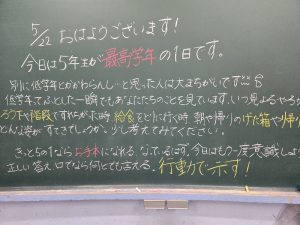 5/22 おはようございます!
今日は5年生が最高学年の1日です。
別に低学年とかかわらんし…と思った人は大まちがいです
低学年てふとした一瞬でもあなたたちのことを見ています。いつ見よるやろか
ろう下や階段ですれちがった時 給食をとりに行く時 朝や帰りのげた箱や帰り
どんな姿がすてきでしょうか。少し考えてみてください。
きっと5の1なら お手本になれる、なっているはず。今日はもう一度意識しよう
正しい答え、口でなら何とでも言える。行動で示す!